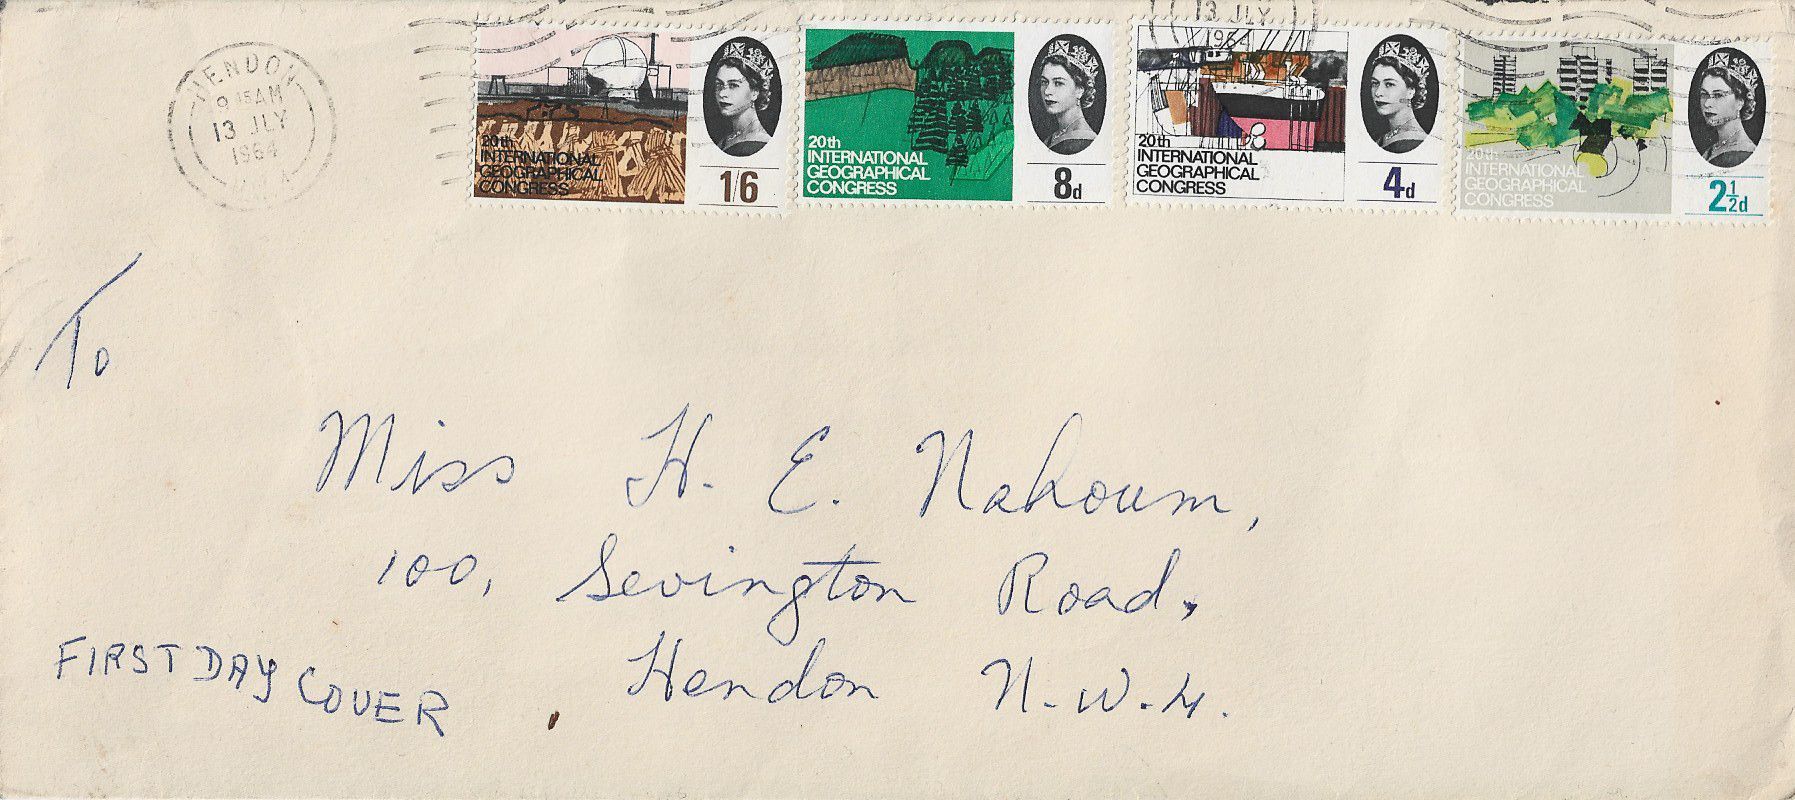 HENDON
9 15 AM
13 JLY
1964
13 JLY
1964
20th
INTERNATIONAL
GEOGRAPHICAL
CONGRESS
1/6
20th
INTERNATIONAL
GEOGRAPHICAL
CONGRESS
8d
20th
INTERNATIONAL
GEOGRAPHICAL
CONGRESS
4d
20th
INTERNATIONAL
GEOGRAPHICAL
CONGRESS
2½d
To
Miss H. E. Nahoum,
100, Sevington Road,
Hendon N.W.4.
FIRST DAY COVER